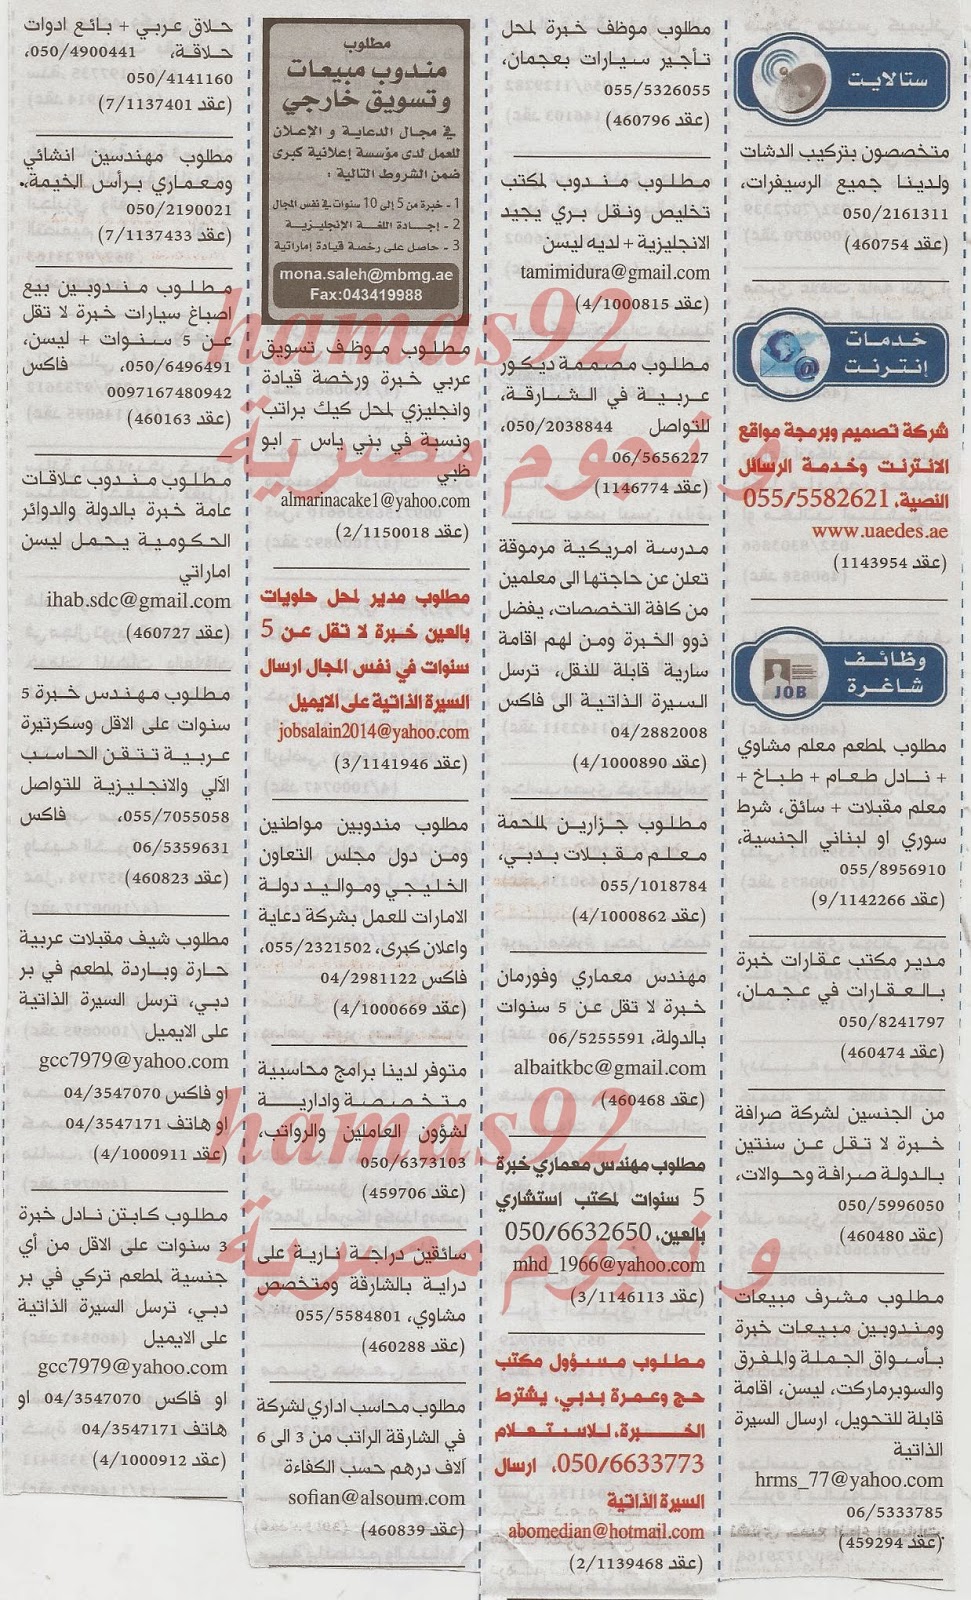 ستالايت
متخصصون بتركيب الدشات
ولدينا جميع الرسيفرات،
050/2161311
(عقد 460754)
خدمات
إنترنت
شركة تصميم وبرمجة مواقع
الانترنت وخدمة الرسائل
النصية، 055/5582621
www.uaedes.ae
(عقد 1143954)
وظائف
شاغرة
JOB
مطلوب لمطعم معلم مشاوي
+ نادل طعام + طباخ +
معلم مقبلات + سائق، شرط
سوري او لبناني الجنسية،
055/8956910
(عقد 9/1142266)
مدير مكتب عقارات خبرة
بالعقارات في عجمان،
050/8241797
(عقد 460474)
من الجنسين لشركة صرافة
خبرة لا تقل عن سنتين
بالدولة صرافة وحوالات،
050/5996050
(عقد 460480)
مطلوب مشرف مبيعات
ومندوبين مبيعات خبرة
بأسواق الجملة والمفرق
والسوبرماركت، ليسن، اقامة
قابلة للتحويل، ارسال السيرة
الذاتية
hrms_77@yahoo.com
06/5333785
(عقد 459294)
مطلوب موظف خبرة لمحل
تأجير سيارات بعجمان،
055/5326055
(عقد 460796)
مطلوب مندوب لمكتب
تخليص ونقل بري يجيد
الانجليزية + لديه ليسن
tamimidura@gmail.com
(عقد 4/1000815)
مطلوب مصممة ديكور
عربية في الشارقة،
للتواصل 050/2038844،
06/5656227
(عقد 1146774)
مدرسة امريكية مرموقة
تعلن عن حاجتها الى معلمين
من كافة التخصصات، يفضل
ذوو الخبرة ومن لهم اقامة
سارية قابلة للنقل، ترسل
السيرة الذاتية الى فاكس
04/2882008
(عقد 4/1000890)
مطلوب جزارين للملحمة
معلم مقبلات بدبي،
055/1018784
(عقد 4/1000862)
مهندس معماري وفورمان
خبرة لا تقل عن 5 سنوات
بالدولة، 06/5255591
albaitkbc@gmail.com
(عقد 460468)
مطلوب مهندس معماري خبرة
5 سنوات لمكتب استشاري
بالعين، 050/6632650
mhd_1966@yahoo.com
(عقد 3/1146113)
مطلوب مسؤول مكتب
حج وعمرة بدبي، يشترط
الخبرة، للاستعلام
050/6633773، ارسال
السيرة الذاتية
abomedian@hotmail.com
(عقد 2/1139468)
مطلوب
مندوب مبيعات
وتسويق خارجي
في مجال الدعاية و الإعلان
للعمل لدى مؤسسة إعلانية كبرى
ضمن الشروط التالية :
1 - خبرة من 5 إلى 10 سنوات في نفس المجال
2 - إجادة اللغة الإنجليزية
3 - حاصل على رخصة قيادة إماراتية
mona.saleh@mbmg.ae
Fax:043419988
مطلوب موظف تسويق
عربي خبرة ورخصة قيادة
وانجليزي لمحل كيك براتب
ونسبة في بني ياس - ابو
ظبي
almarinacake1@yahoo.com
(عقد 2/1150018)
مطلوب مدير لمحل حلويات
بالعين خبرة لا تقل عن 5
سنوات في نفس المجال ارسال
السيرة الذاتية على الايميل
jobsalain2014@yahoo.com
(عقد 3/1141946)
مطلوب مندوبين مواطنين
ومن دول مجلس التعاون
الخليجي ومواليد دولة
الامارات للعمل بشركة دعاية
واعلان كبرى، 055/2321502،
فاكس 04/2981122
(عقد 4/1000669)
متوفر لدينا برامج محاسبية
متخصصة وادارية
لشؤون العاملين والرواتب،
050/6373103
(عقد 459706)
سائقين دراجة نارية على
دراية بالشارقة ومتخصص
مشاوي، 055/5584801
(عقد 460288)
مطلوب محاسب اداري لشركة
في الشارقة الراتب من 3 الى 6
آلاف درهم حسب الكفاءة
sofian@alsoum.com
(عقد 460839)
حلاق عربي + بائع ادوات
حلاقة، 050/4900441،
050/4141160
(عقد 7/1137401)
مطلوب مهندسين انشائي
ومعماري برأس الخيمة،
050/2190021
(عقد 7/1137433)
مطلوب مندوبين بيع
اصباغ سيارات خبرة لا تقل
عن 5 سنوات + ليسن،
050/6496491، فاكس
0097167480942
(عقد 460163)
مطلوب مندوب علاقات
عامة خبرة بالدولة والدوائر
الحكومية يحمل ليسن
اماراتي
ihab.sdc@gmail.com
(عقد 460727)
مطلوب مهندس خبرة 5
سنوات على الاقل وسكرتيرة
عربية تتقن الحاسب
الآلي والانجليزية للتواصل
055/7055058، فاكس
06/5359631
(عقد 460823)
مطلوب شيف مقبلات عربية
حارة وباردة لمطعم في بر
دبي، ترسل السيرة الذاتية
على الايميل
gcc7979@yahoo.com
او فاكس 04/3547070
او هاتف 04/3547171
(عقد 4/1000911)
مطلوب كابتن نادل خبرة
3 سنوات على الاقل من أي
جنسية لمطعم تركي في بر
دبي، ترسل السيرة الذاتية
على الايميل
gcc7979@yahoo.com
او فاكس 04/3547070 او
هاتف 04/3547171
(عقد 4/1000912)
hamas92
و نجوم مصرية
hamas92
و نجوم مصرية